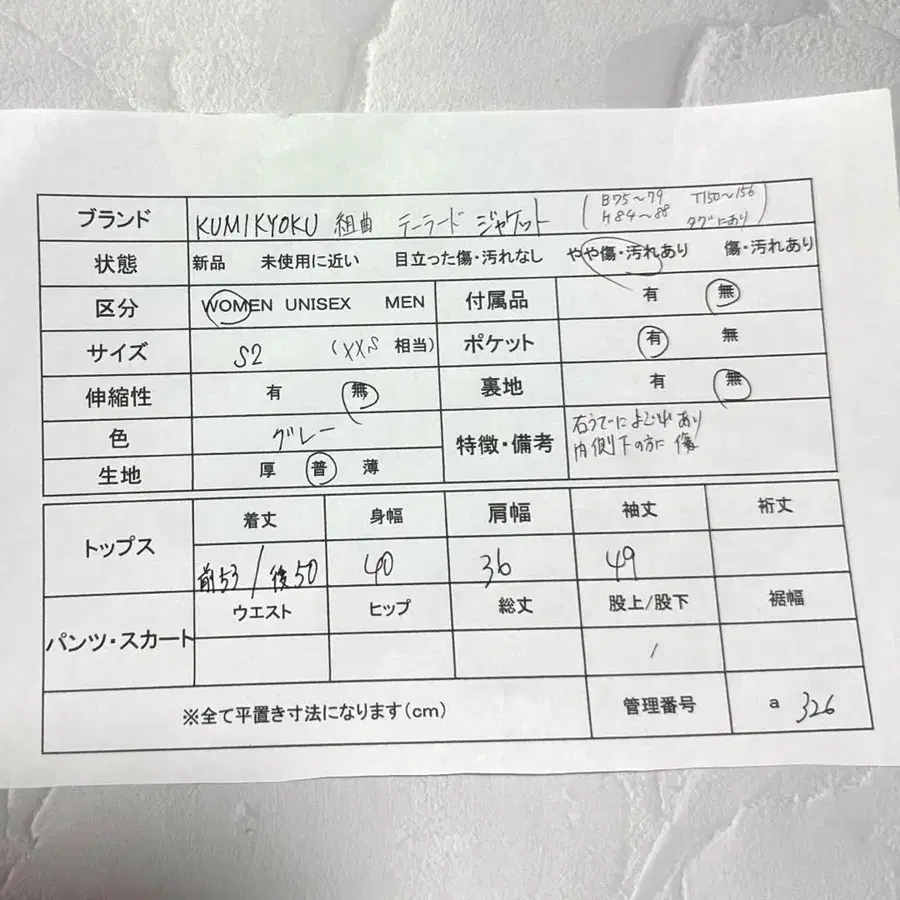 ブランド KUMIKYOKU 組曲 テーラード ジャケット (B75～79 T150～156
H84～88 タグにあり)
状態 新品 未使用に近い 目立った傷・汚れなし やや傷・汚れあり 傷・汚れあり
区分 WOMEN UNISEX MEN 付属品 有 無
サイズ S2 (XXS 相当) ポケット 有 無
伸縮性 有 無 裏地 有 無
色 グレー 特徴・備考 右うでによごれあり
内側下の方に傷
生地 厚 普 薄
トップス 着丈 身幅 肩幅 袖丈 裄丈
前53/後50 40 36 49
パンツ・スカート ウエスト ヒップ 総丈 股上/股下 裾幅
/
※全て平置き寸法になります(cm) 管理番号 a 326